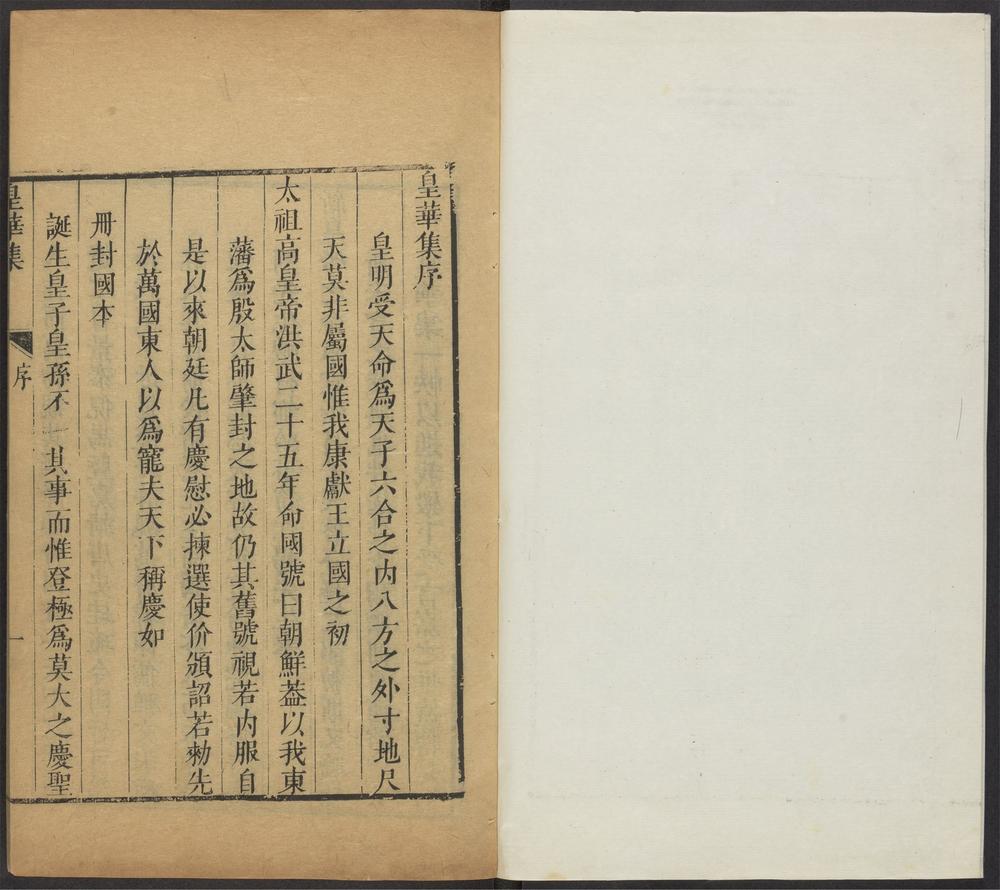 皇華集序
皇明受天命爲天子六合之内八方之外寸地尺
天莫非屬國惟我康獻王立國之初
太祖高皇帝洪武二十五年命國號曰朝鮮葢以我東
藩爲殷太師肇封之地故仍其舊號視若内服自
是以來朝廷凡有慶慰必揀選使价頒詔若勑先
於萬國東人以爲寵夫天下稱慶如
冊封國本
誕生皇子皇孫不一其事而惟登極爲莫大之慶聖
皇華集
序
一